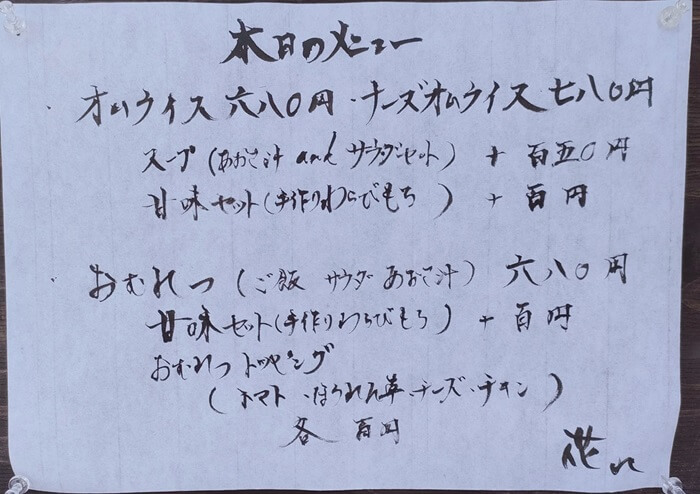 本日のメニュー
・オムライス 六八〇円・チーズオムライス 七八〇円
スープ(あおさ汁 and サラダセット) + 百五〇円
甘味セット(手作りわらびもち) + 百円
・おむれつ (ご飯 サラダ あおさ汁) 六八〇円
甘味セット(手作りわらびもち) + 百円
おむれつトッピング
(トマト・ほうれん草・チーズ・チキン)
各 百円
花